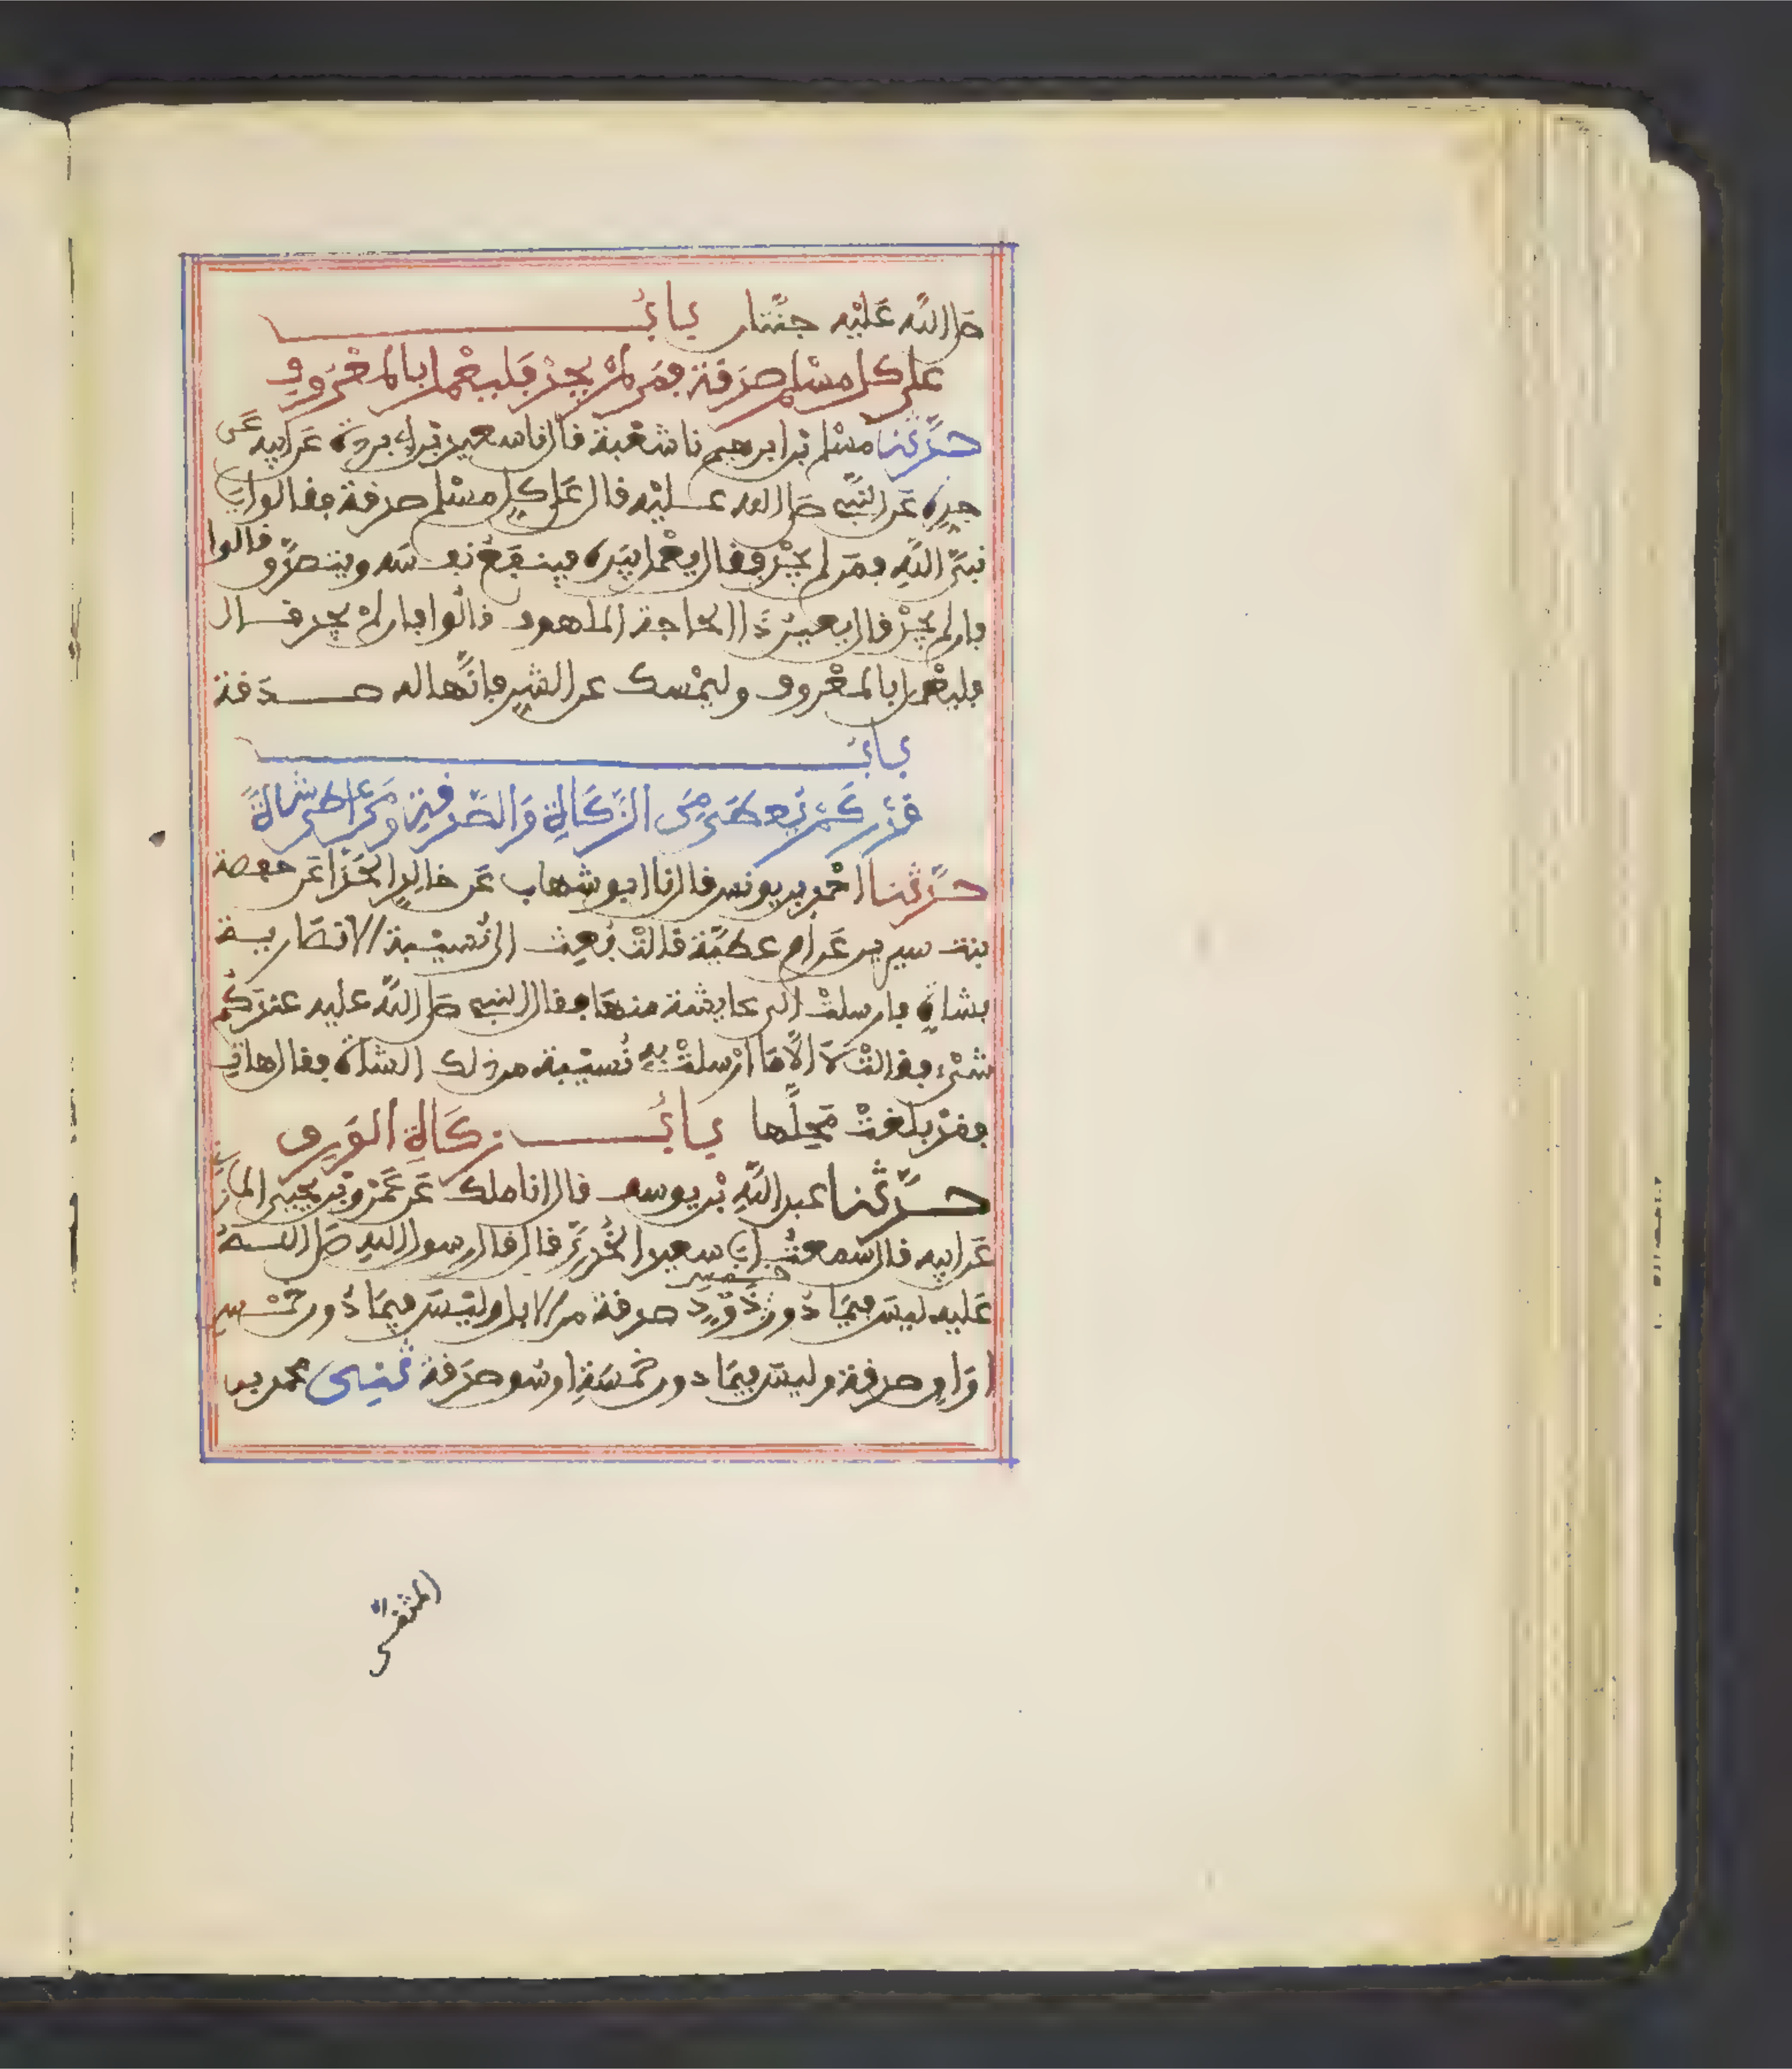 صلى الله عليه جنتان باب
على كل مسلم صدقة فمن لم يجد فليعمل بالمعروف
حدثنا مسلم بن ابرهيم نا شعبة قال نا سعيد بن ابي بردة عن ابيه عن
جده عن النبي صلى الله عليه قال على كل مسلم صدقة فقالوا يا
نبي الله فمن لم يجد فقال يعمل بيده فينفع نفسه ويتصدق قالوا
فان لم يجد قال يعين ذا الحاجة الملهوف قالوا فان لم يجد قال
فليعمل بالمعروف وليمسك عن الشر فانها له صدقة
باب
قدر كم يعطى من الزكاة والصدقة ومن اعطى شاة
حدثنا احمد بن يونس قال نا ابو شهاب عن خالد الحذا عن حفصة
بنت سيرين عن ام عطية قالت بعث الى نسيبة الانصارية
بشاة فارسلت الى عايشة منها فقال النبي صلى الله عليه عندكم
شيء فقالت لا الا ما ارسلت به نسيبة من ذلك الشاة فقال هات
فقد بلغت محلها باب زكاة الورق
حدثنا عبد الله بن يوسف قال انا ملك عن عمرو بن يحيى المازني
عن ابيه قال سمعت ابا سعيد الخدري قال قال رسول الله صلى الله
عليه ليس فيما دون خمس ذود صدقة من الابل وليس فيما دون خمس
اواق صدقة وليس فيما دون خمسة اوسق صدقة ثني محمد بن
المثنى